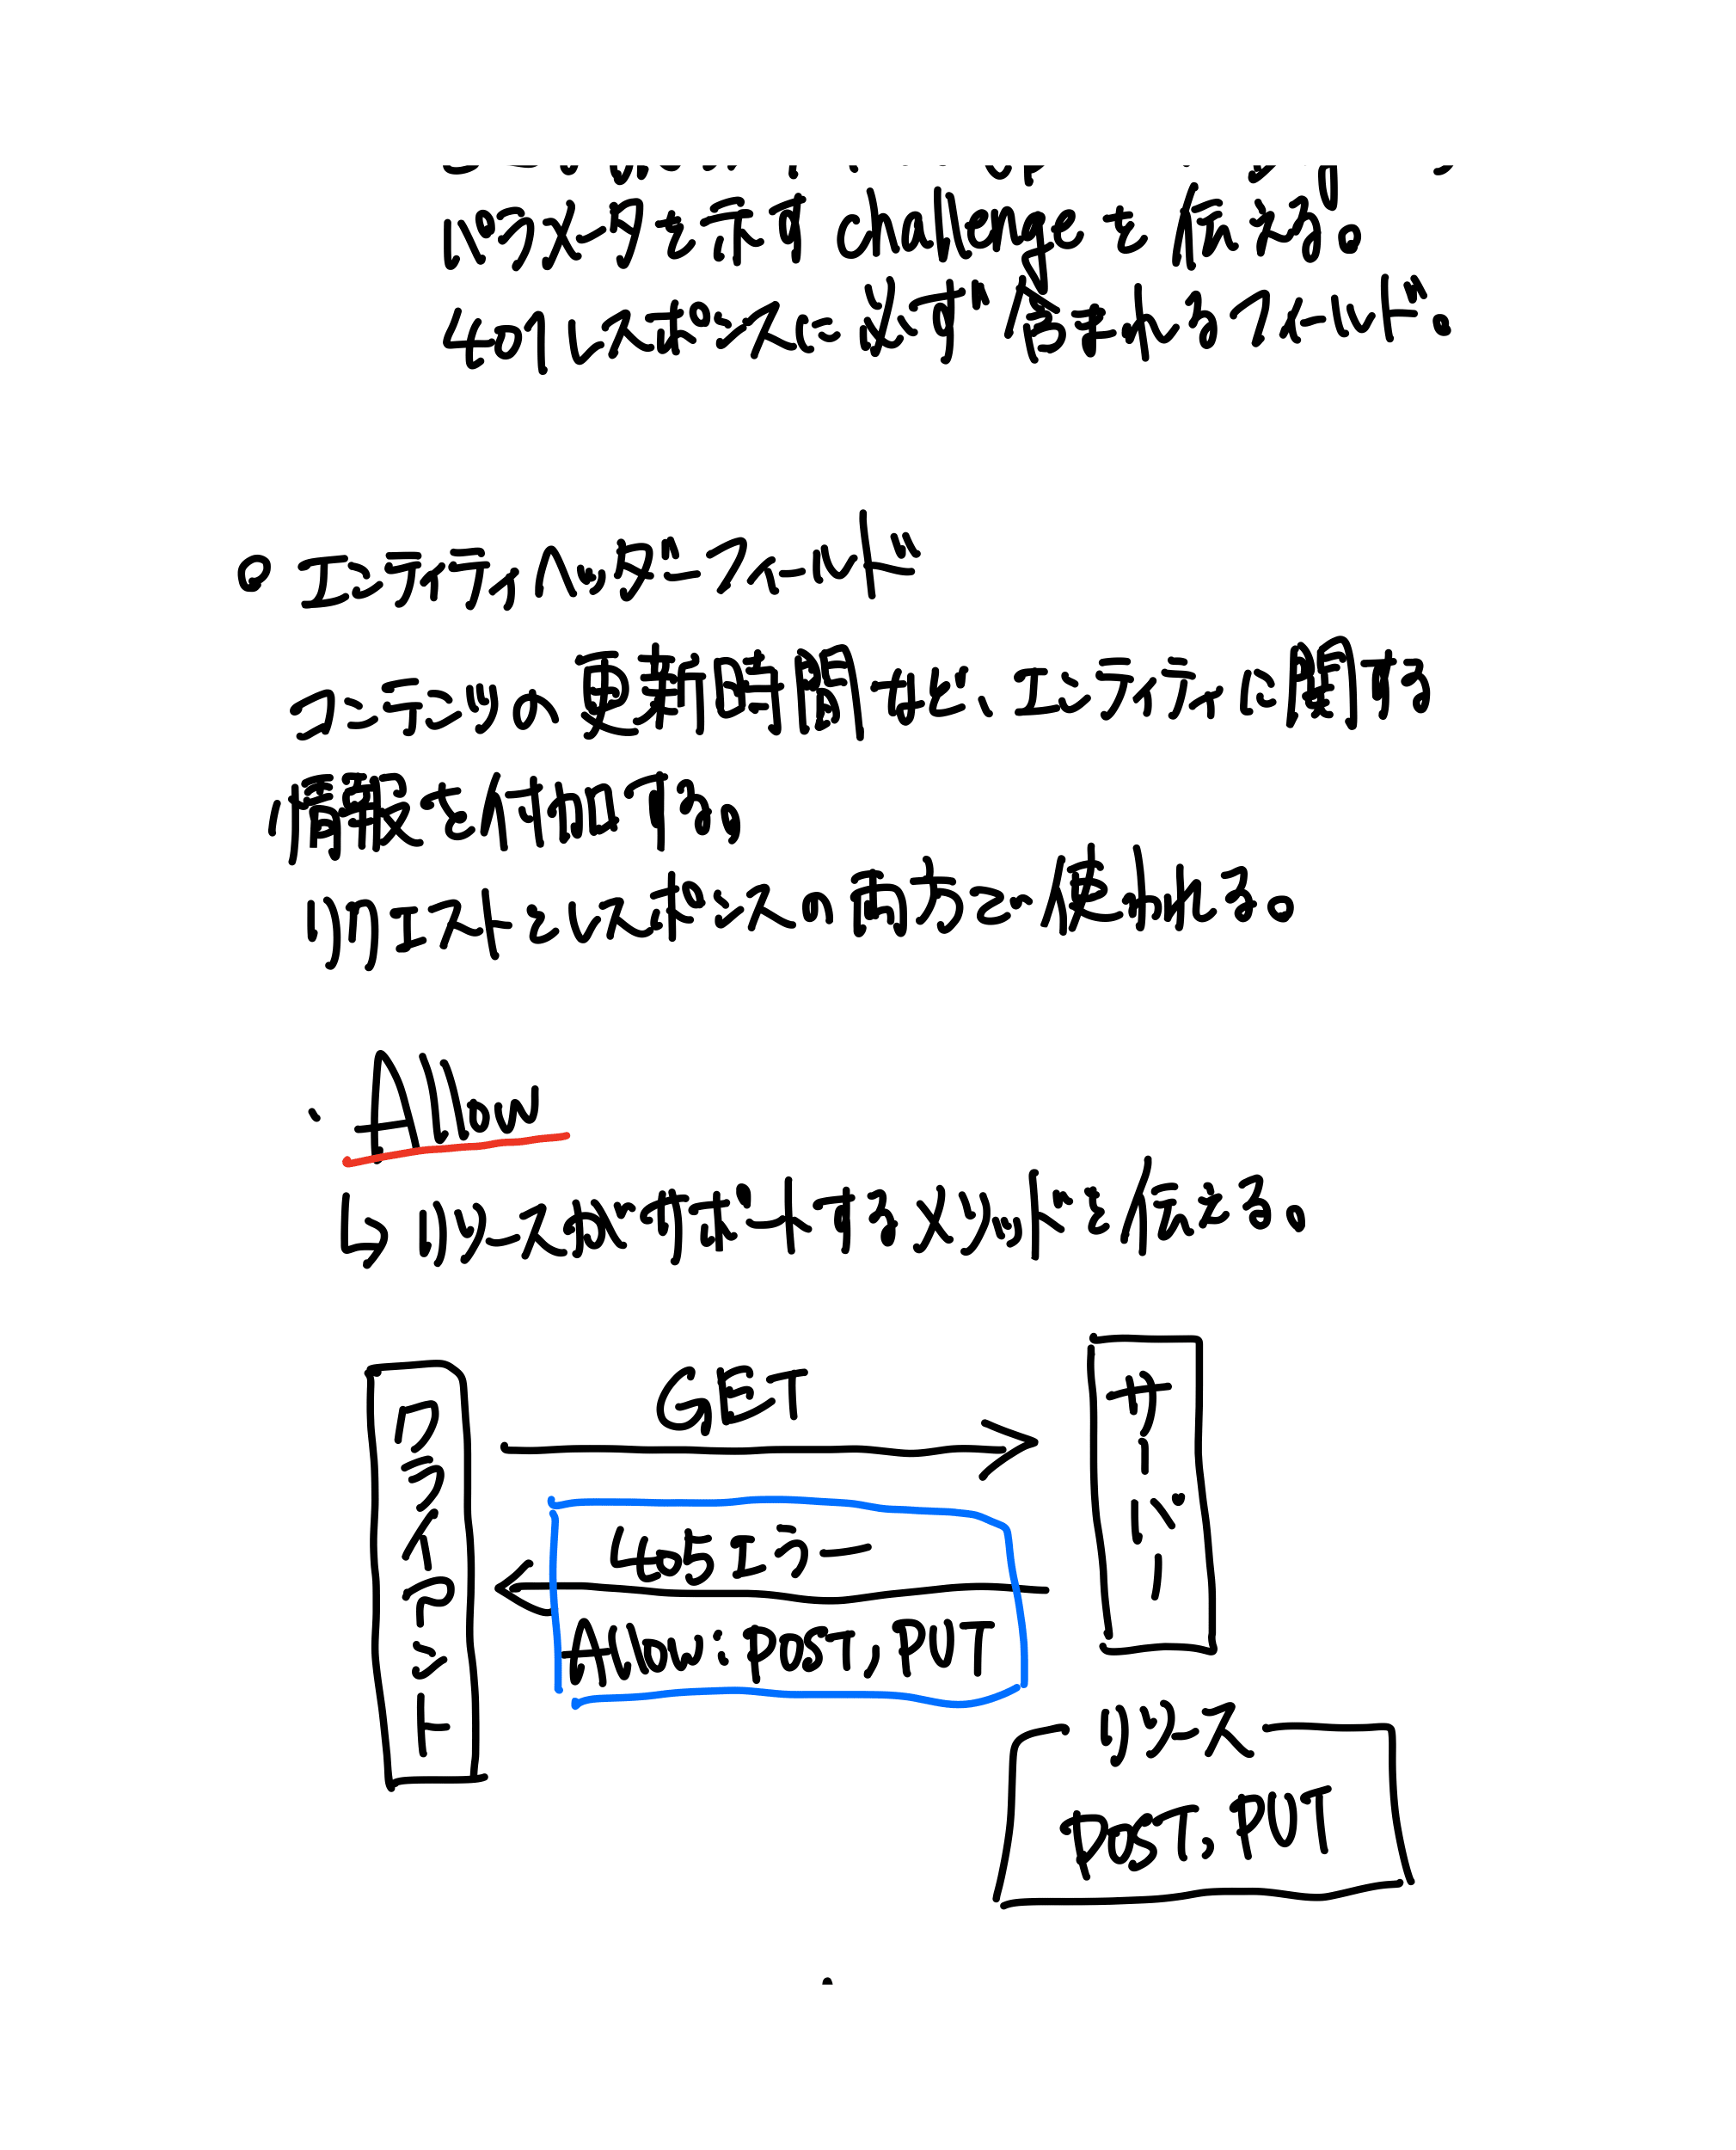 パラメータを示す challenge を伝える。
401レスポンスに必ず含まれるフィールド。
○ エンティティヘッダーフィールド
コンテンツの更新時間など、エンティティに関する
情報を付加する。
リクエストとレスポンスの両方で使われる。
・Allow
↳ リソースがサポートするメソッドを伝える。
GET
クライアント
サーバー
405エラー
Allow: POST, PUT
リソース
POST, PUT